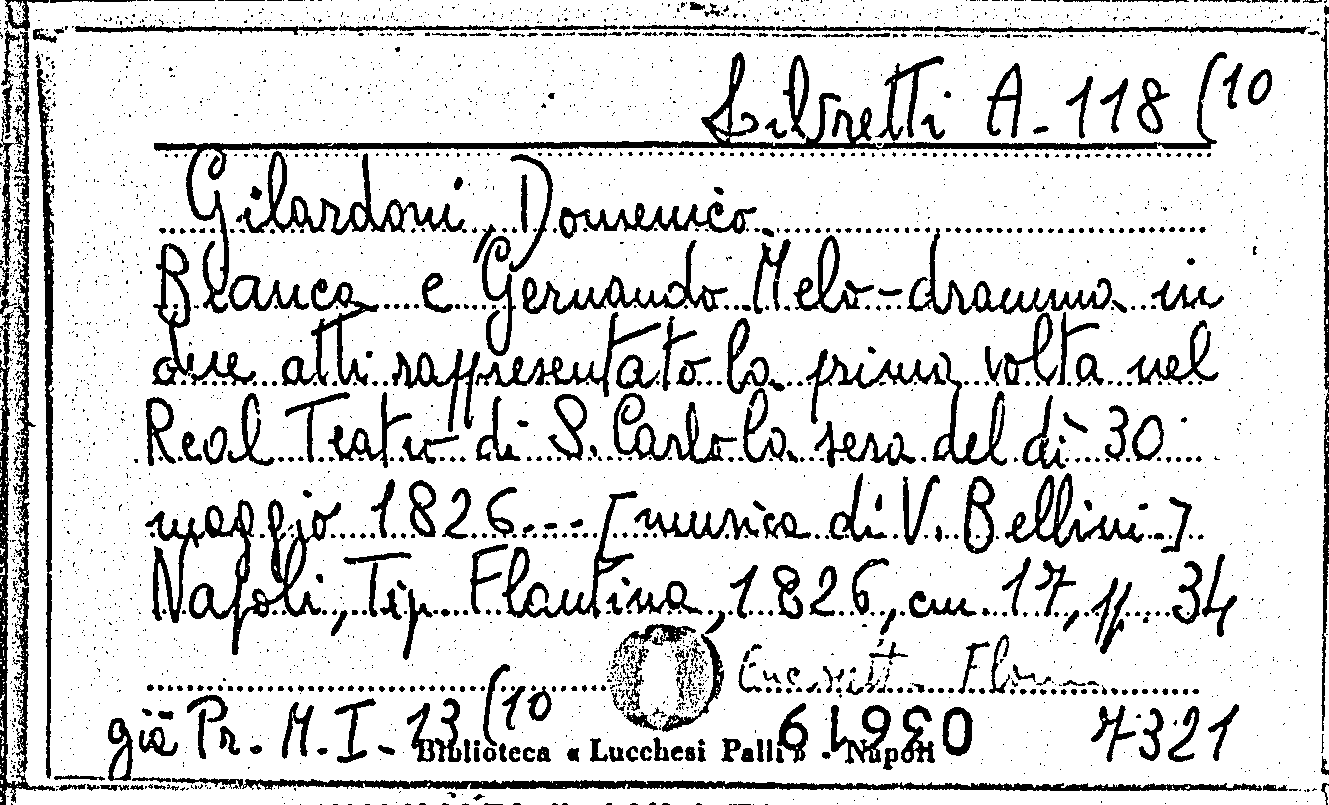 Libretti A-118 (10
Gilardoni, Domenico.
Bianca e Gernando. Melo-dramma in
due atti rappresentato la prima volta nel
Real Teatro di S. Carlo la sera del dì 30
maggio 1826... [musica di V. Bellini.]
Napoli, Tip. Flautina, 1826, cm. 17, pp. 34
già Pr. M. I - 13 (10 03619 7321
Biblioteca « Lucchesi Palli » - Napoli